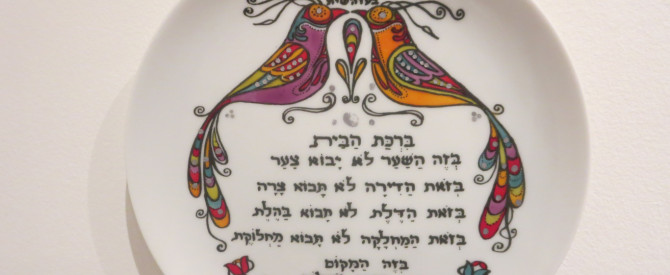 בִּרְכַּת הַבַּיִת
בְּזֶה הַשַּׁעַר לֹא יָבוֹא צַעַר
בְּזֹאת הַדִּירָה לֹא תָבוֹא צָרָה
בְּזֹאת הַדֶּלֶת לֹא תָבוֹא בֶּהָלֶת
בְּזֹאת הַמַּחְלָקָה לֹא תָבוֹא מַחְלוֹקֶת
בְּזֶה הַמָּקוֹם